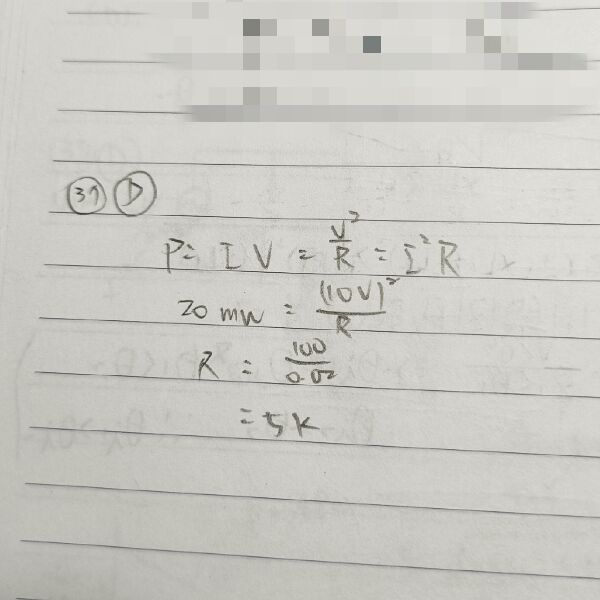 31 D
P = IV = V²/R = I²R
20 mW = (10V)²/R
R = 100/0.02
= 5K